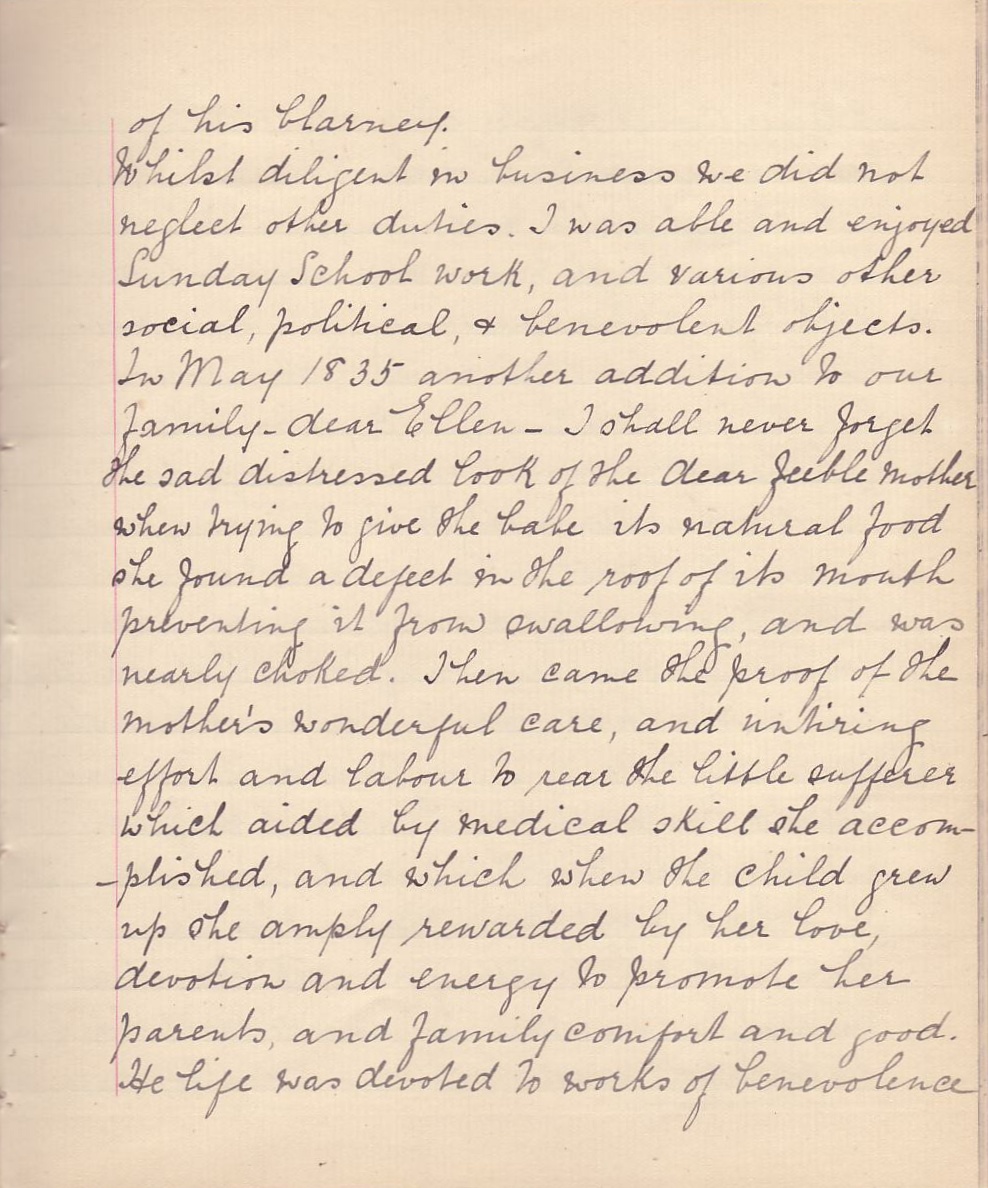 of his blarney.
Whilst diligent in business we did not
neglect other duties. I was able and enjoyed
Sunday School work, and various other
social, political, & benevolent objects.
In May 1835 another addition to our
family - dear Ellen - I shall never forget
the sad distressed look of the dear feeble mother
when trying to give the babe its natural food
she found a defect in the roof of its mouth
preventing it from swallowing, and was
nearly choked. Then came the proof of the
mother's wonderful care, and untiring
effort and labour to rear the little sufferer
which aided by medical skill she accom-
-plished, and which when the child grew
up she amply rewarded by her love,
devotion and energy to promote her
parents, and family comfort and good.
He life was devoted to works of benevolence